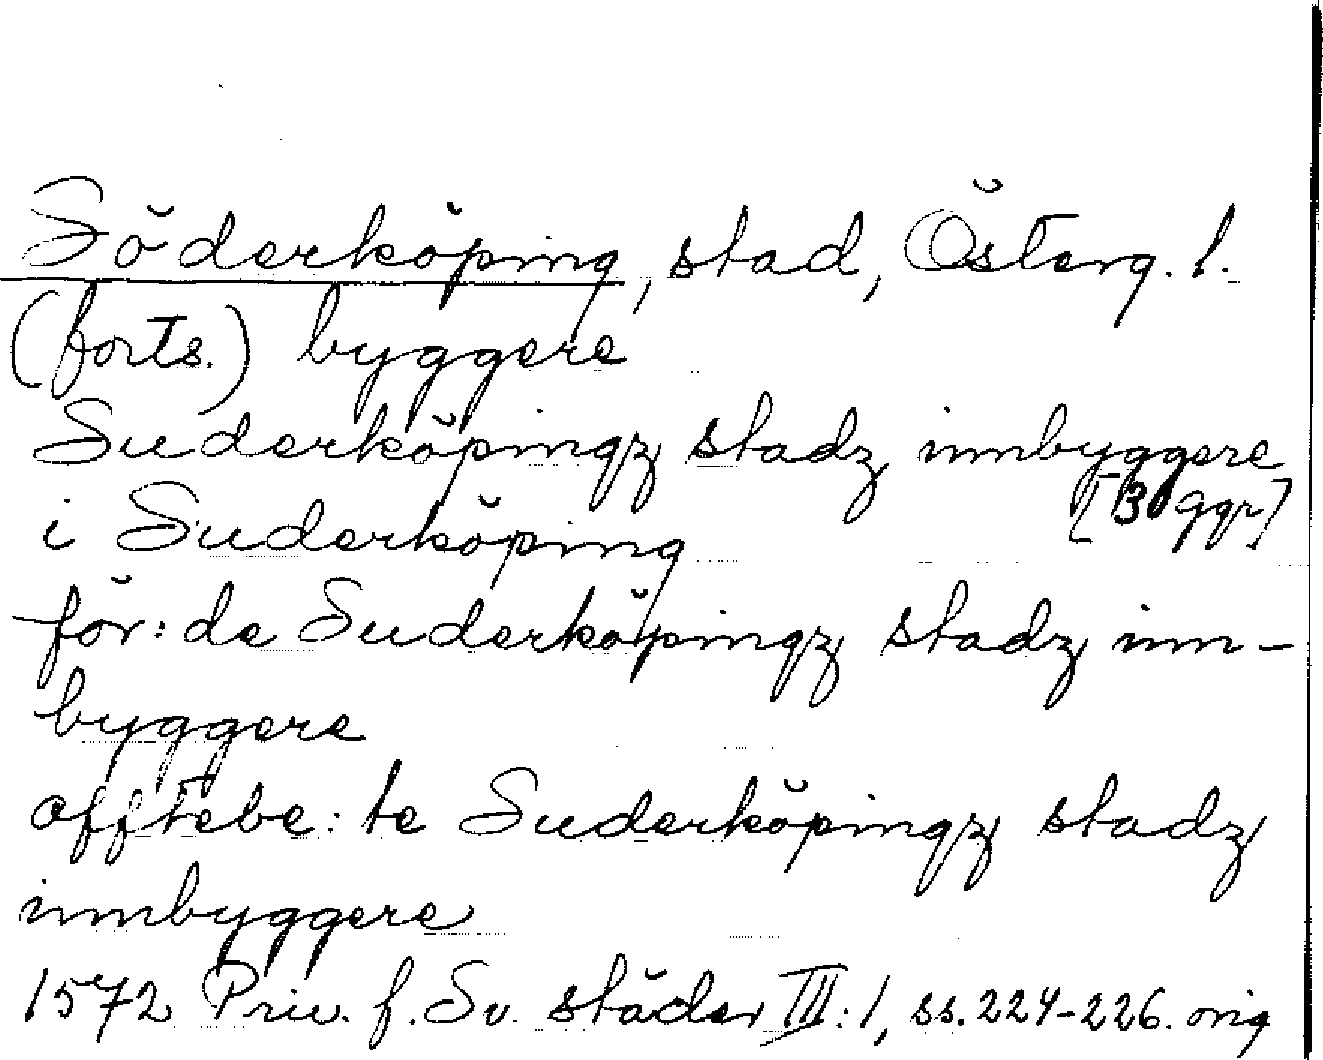 Söderköping, stad, Österg. l.
(forts.) byggere
Suderköpingz stadz innbyggere
i Suderköping [3 ggr]
för: de Suderköpingz stadz inn-
byggere
offtebe: te Suderköpingz stadz
innbyggere
1572 Priv. f. Sv. städer III:1, ss. 224-226. orig